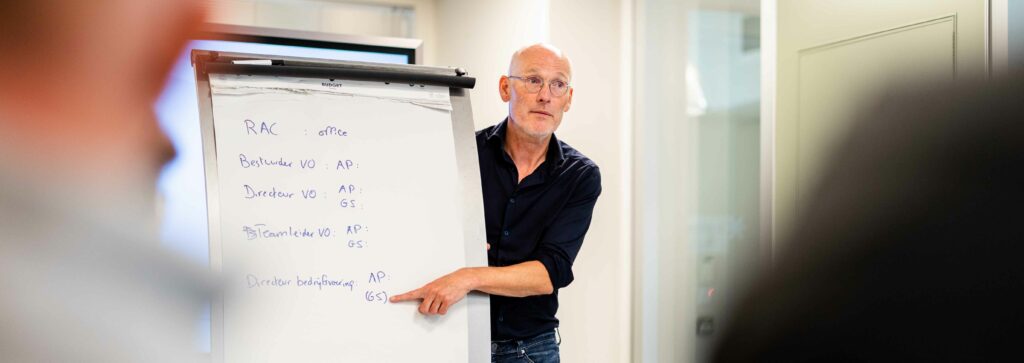 BUDGET
RAC : office
Bestuurder VO : AP :
Directeur VO : AP :
GS :
Teamleider VO : AP :
GS :
Directeur bedrijfsvoering : AP :
(GS)